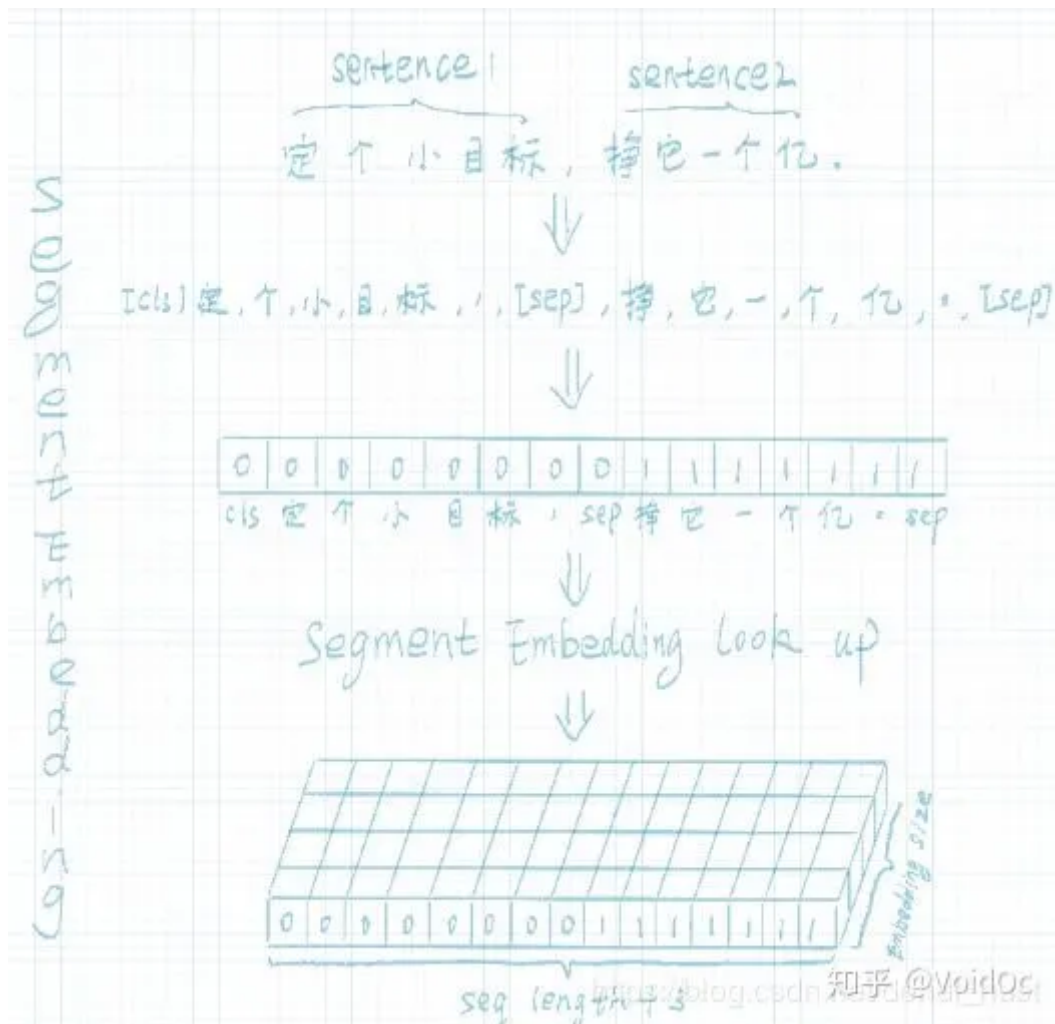 sentence1 sentence2
定个小目标，挣它一个亿.
[cls]定,个,小,目,标,，,[sep],挣,它,一,个,亿,。,[sep]
0 0 0 0 0 0 0 0 1 1 1 1 1 1 1
cls 定 个 小 目 标 ， sep 挣 它 一 个 亿 。 sep
Segment Embedding look up
0 0 0 0 0 0 0 0 1 1 1 1 1 1 1
Embedding size
seq length + 3
Segment Embedding
知乎 @VoidOc